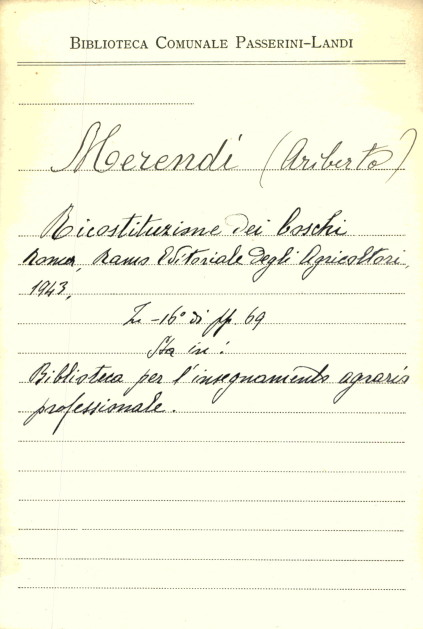 BIBLIOTECA COMUNALE PASSERINI-LANDI
Merendi (Ariberto)
Ricostituzione dei boschi
Roma, Ramo Editoriale Degli Agricoltori,
1943,
in -16° di pp. 69
Sta in:
Biblioteca per l'insegnamento agrario
professionale.